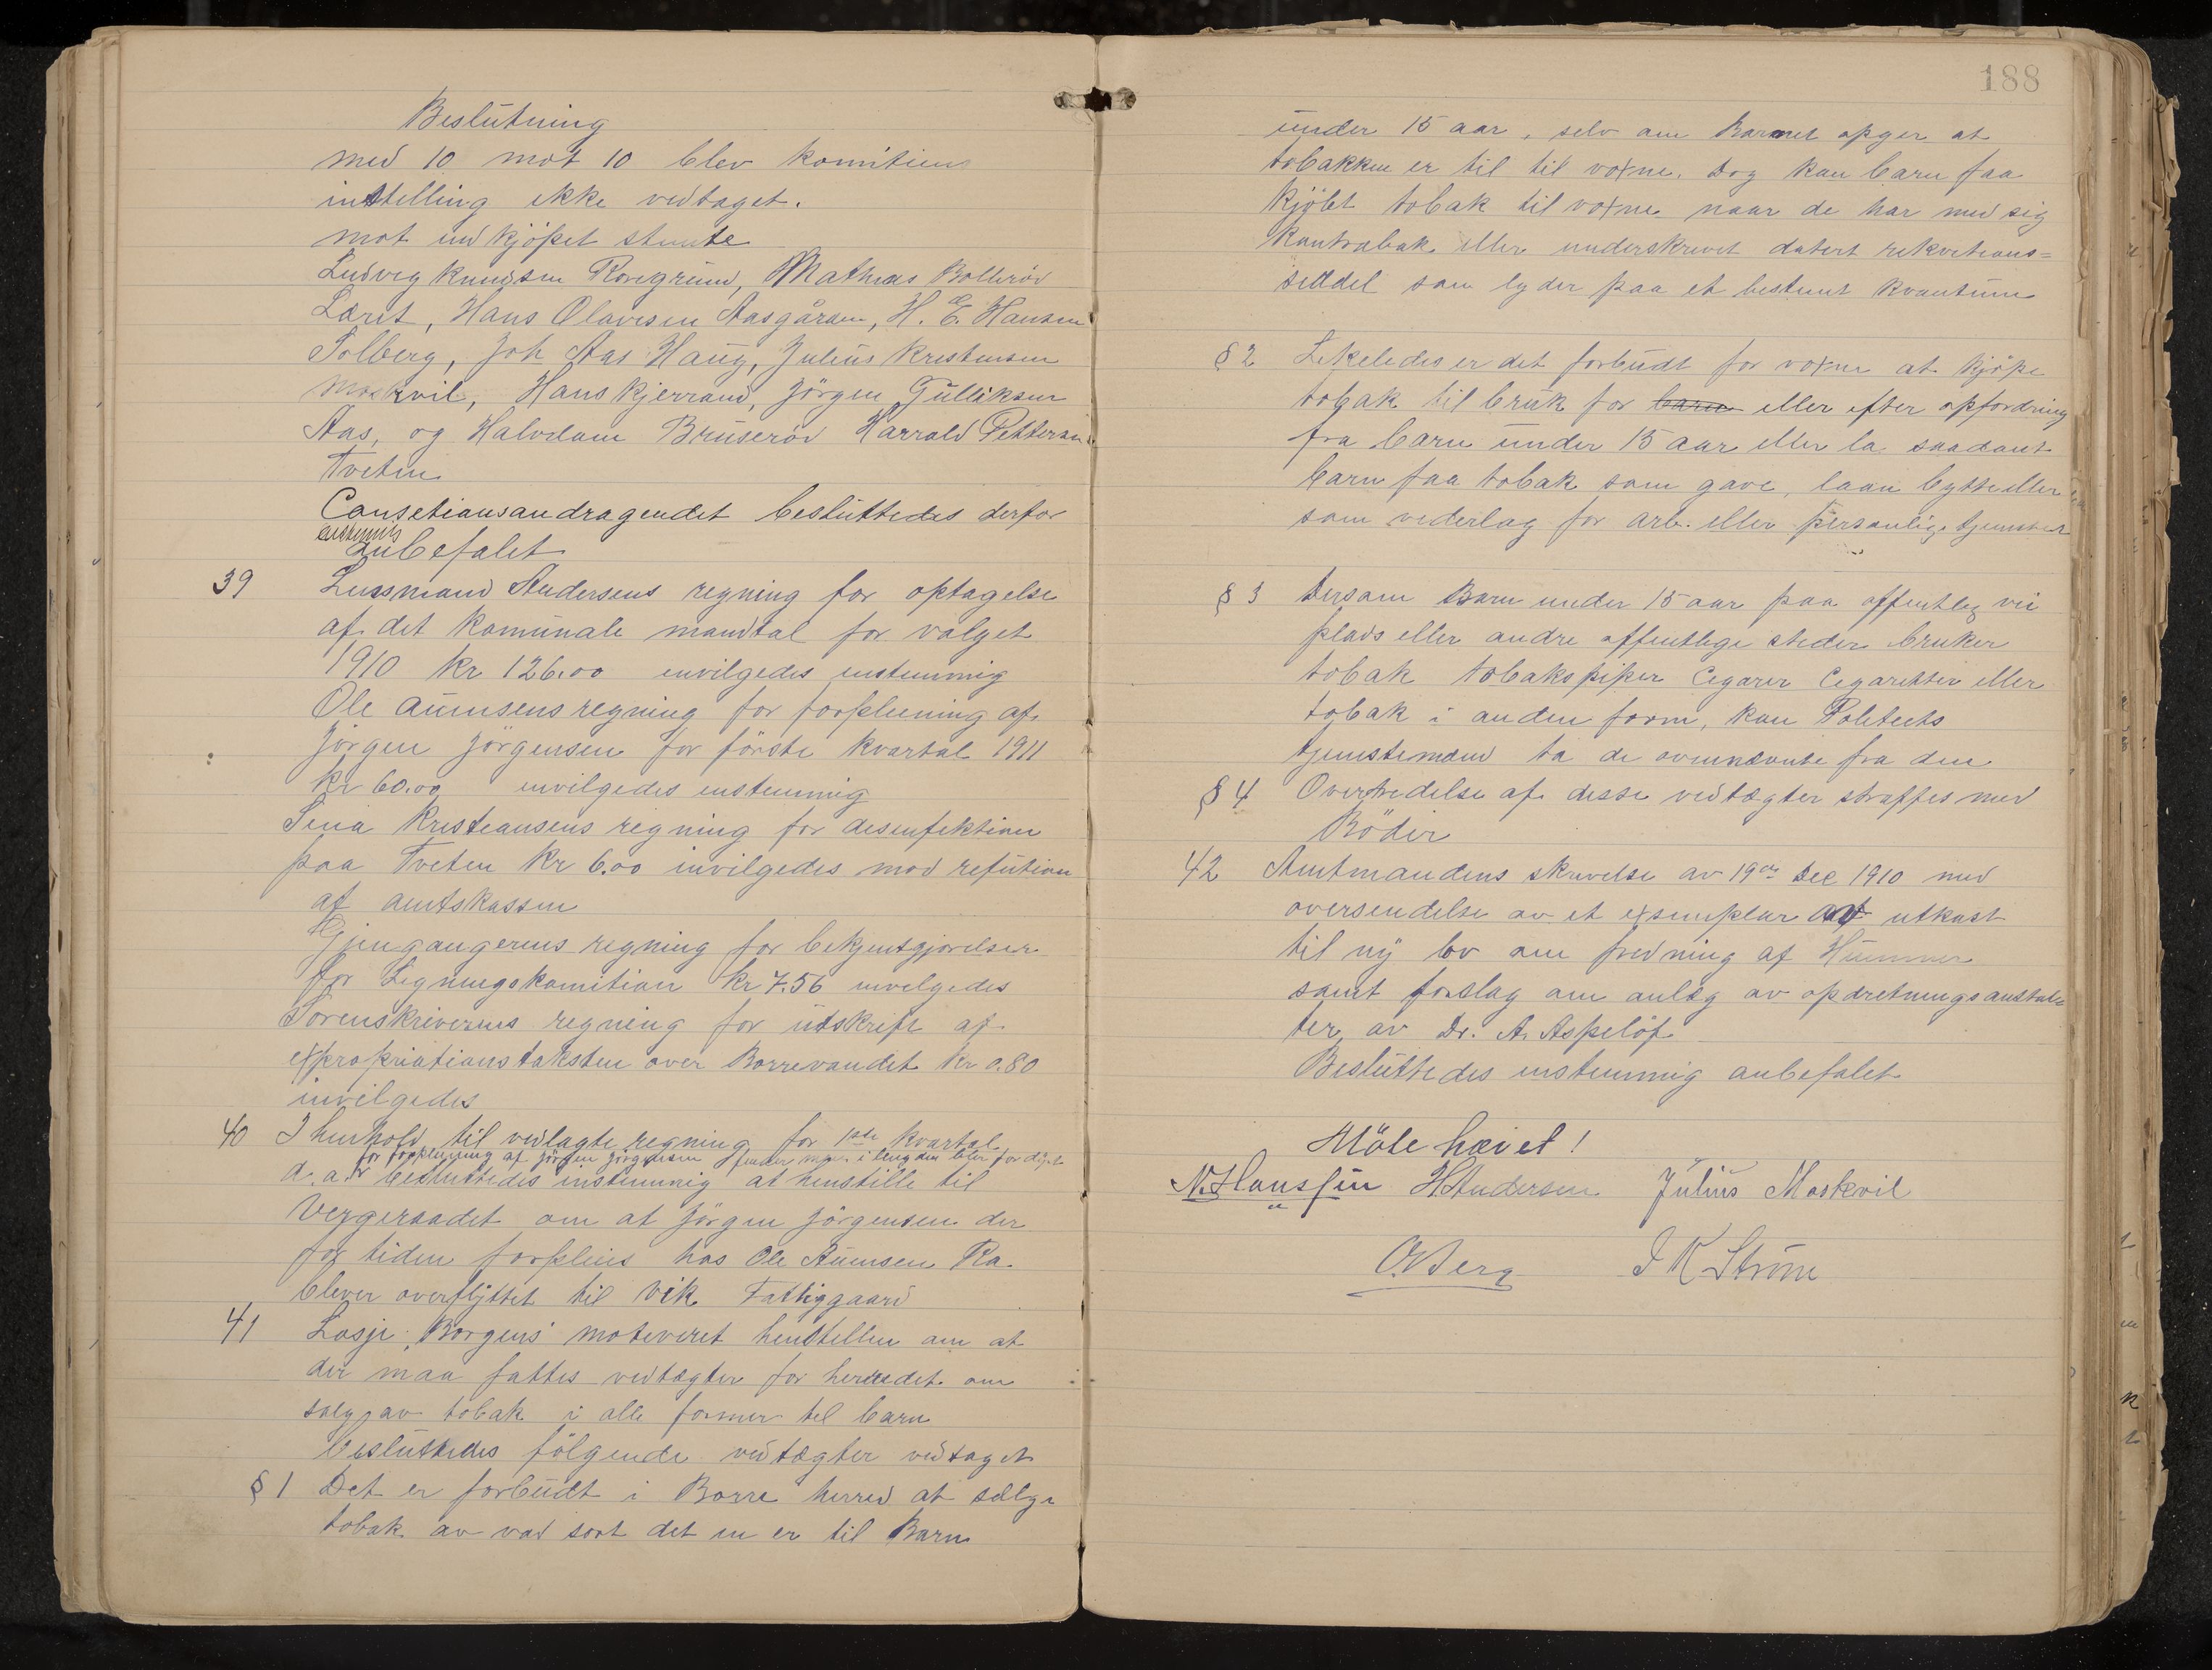 Beslutning
med 10 mot 10 blev komitiens
instelling ikke vedtaget.
mot indkjøpet stemte
Ludvig Knudsen Rosegrund, Mathias Bollerød
Læret, Hans Olavesen Aasgården, H. E. Hansen
Solberg, Joh Aas Haug, Julius Kristensen
Moskvil, Hans Kjerrand, Jörgen Gulliksen
Aas, og Halvdam Bruserød Harrald Pettersen
Tveten
Consetionsandragendet besluttedes derfor
enstemig
anbefalet
39 Lensmand Andersens regning for optagelse
af det komunale mandtal for valget
1910 Kr 126.00 invilgedes enstemmig
Ole Aumsens regning for forpleining af
Jörgen Jörgensen for förste kvartal 1911
Kr 60.00 invilgedes enstemmig
Sina Kristeansens regning for desenfektion
paa Tveten Kr 6.00 invilgedes mod refution
af amtskassen
Gjengangerens regning for bekjentgjörelser
for Legningskomition Kr 7.56 invelgedes
Sorenskriverens regning for utskrift af
expropriationstaksten over Borrevandet Kr 0.80
invilgedes
40 I henhold til vedlagte regning for 1ste kvartal
for forpleining af Jörgen Jörgensen finder man i længden
d. a. besluttedes enstemmig at henstille til
Vergeraadet om at Jörgen Jörgensen der
for tiden forpleies hos Ole Aumsen Ra.
blever overflyttet til Vik Fattiggaard
41 Losje „Borgens" moteveret henstellen om at
der maa fattes vedtægter for herredet om
salg av tobak i alle former tel barn
besluttedes fölgende vedtægter vedtaget
§ 1 Det er forbudt i Borre herred at sælge
tobak av vad sort det en er til Barn
188
under 15 aar, selv om Barnet opger at
tobakken er til til voxne. Dog kan barn faa
kjöbt tobak til voxne naar de har med sig
Kontrabok eller underskrevet datert rekvitions=
seddel som lyder paa et bestemt kvantum
§ 2 Lekeledes er det forbudt for voxne at kjöpe
tobak til bruk for barn eller efter opfordring
fra barn under 15 aar eller la saadant
barn faa tobak som gave, laan bytte eller
som vederlag for arb. eller personlige tjenester
§ 3 Dersom Barn under 15 aar paa offentleg vei
plads eller andre offentlege steder bruker
tobak tobakspiper Cegarer Cegaretter eller
tobak i anden form, kan Poleteets
tjenestemænd ta de ovennævnte fra dem
§ 4 Overtredelse af desse vedtægter straffes med
Böder
42 Amtmandens skrevelse av 19de Dec 1910 med
oversendelse av et exsemplar av utkast
til ny lov om fredning af Hummer
samt forslag om anlæg av opdretningsanstal=
ter av Dr. A. Aspelöf
Besluttedes enstemmig anbefalet
Möte hævet!
N. Hanssen H Andersen Julius Moskvil
O. Berg I K Ström